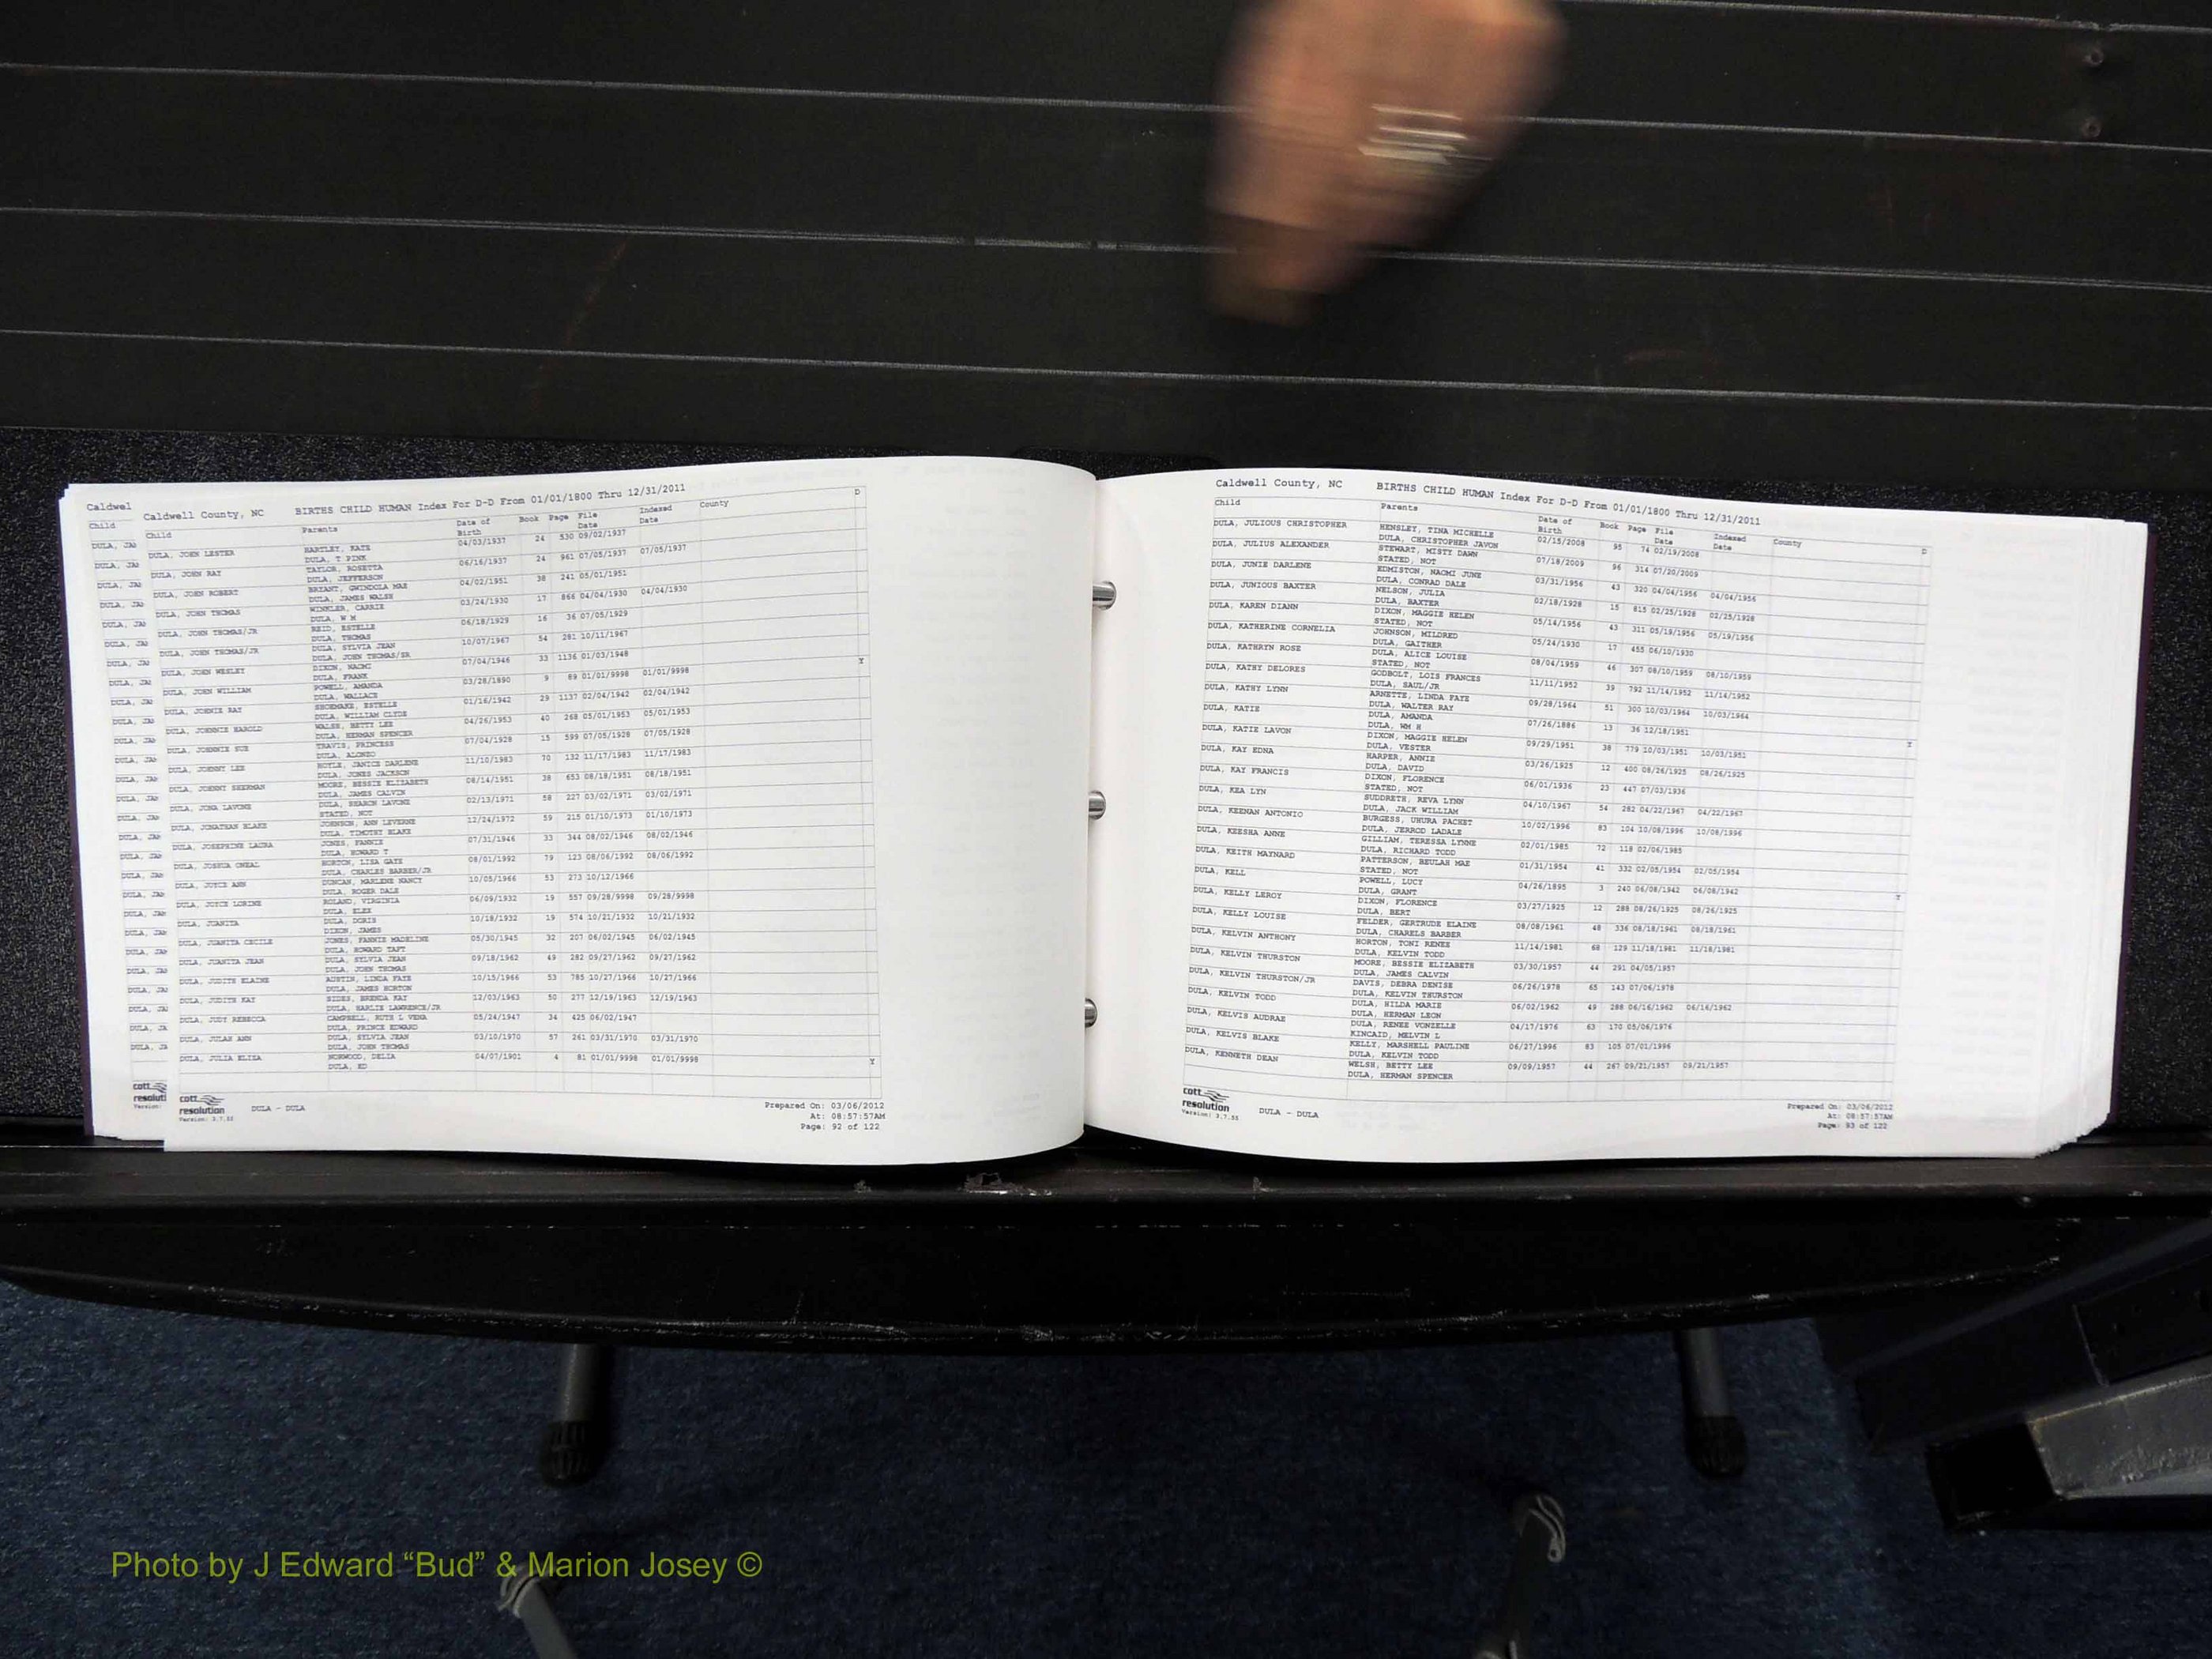 Caldwel
Child
Caldwell County, NC BIRTHS CHILD HUMAN Index For D-D From 01/01/1800 Thru 12/31/2011
Child Parents Date of Birth Book Page File Date Indexed Date County D
DULA, JOHN LESTER HARTLEY, KATE 04/03/1937 24 530 09/02/1937
DULA, T PINK
DULA, JOHN RAY TAYLOR, ROSETTA 06/16/1937 24 961 07/05/1937 07/05/1937
DULA, JEFFERSON
DULA, JOHN ROBERT BRYANT, GWENDOLA MAE 04/02/1951 38 241 05/01/1951
DULA, JAMES WALSH
DULA, JOHN THOMAS WINKLER, CARRIE 03/24/1930 17 866 04/04/1930 04/04/1930
DULA, W M
DULA, JOHN THOMAS/JR REID, ESTELLE 06/18/1929 16 36 07/05/1929
DULA, THOMAS
DULA, JOHN THOMAS/JR DULA, SYLVIA JEAN 10/07/1967 54 281 10/11/1967
DULA, JOHN THOMAS/SR
DULA, JOHN WESLEY DIXON, NAOMI 07/04/1946 33 1136 01/03/1948
DULA, FRANK
DULA, JOHN WILLIAM POWELL, AMANDA 03/28/1890 9 89 01/01/9998 01/01/9998 Y
DULA, WALLACE
DULA, JOHNIE RAY SHOEMAKE, ESTELLE 01/16/1942 29 1137 02/04/1942 02/04/1942
DULA, WILLIAM CLYDE
DULA, JOHNNIE HAROLD WALSH, BETTY LEE 04/26/1953 40 268 05/01/1953 05/01/1953
DULA, HERMAN SPENCER
DULA, JOHNNIE SUE TRAVIS, PRINCESS 07/04/1928 15 599 07/05/1928 07/05/1928
DULA, ALONZO
DULA, JOHNNY LEE HOYLE, JANICE DARLENE 11/10/1983 70 132 11/17/1983 11/17/1983
DULA, JONES JACKSON
DULA, JOHNNY SHERMAN MOORE, BESSIE ELIZABETH 08/14/1951 38 653 08/18/1951 08/18/1951
DULA, JAMES CALVIN
DULA, JONA LAVONE DULA, SHARON LAVONE 02/13/1971 58 227 03/02/1971 03/02/1971
STATED, NOT
DULA, JONATHAN BLAKE JOHNSON, ANN LEVERNE 12/24/1972 59 215 01/10/1973 01/10/1973
DULA, TIMOTHY BLAKE
DULA, JOSEPHINE LAURA JONES, FANNIE 07/31/1946 33 344 08/02/1946 08/02/1946
DULA, HOWARD T
DULA, JOSHUA ONEAL HORTON, LISA GAYE 08/01/1992 79 123 08/06/1992 08/06/1992
DULA, CHARLES BARBER/JR
DULA, JOYCE ANN DUNCAN, MARLENE NANCY 10/05/1966 53 273 10/12/1966
DULA, ROGER DALE
DULA, JOYCE LORINE ROLAND, VIRGINIA 06/09/1932 19 557 09/28/9998 09/28/9998
DULA, ELEX
DULA, JUANITA DULA, DORIS 10/18/1932 19 574 10/21/1932 10/21/1932
DIXON, JAMES
DULA, JUANITA CECILE JONES, FANNIE MADELINE 05/30/1945 32 207 06/02/1945 06/02/1945
DULA, HOWARD TAFT
DULA, JUANITA JEAN DULA, SYLVIA JEAN 09/18/1962 49 282 09/27/1962 09/27/1962
DULA, JOHN THOMAS
DULA, JUDITH ELAINE AUSTIN, LINDA FAYE 10/15/1966 53 785 10/27/1966 10/27/1966
DULA, JAMES HORTON
DULA, JUDITH KAY SIDES, BRENDA KAY 12/03/1963 50 277 12/19/1963 12/19/1963
DULA, HARLIE LAWRENCE/JR
DULA, JUDY REBECCA CAMPBELL, RUTH L VENA 05/24/1947 34 425 06/02/1947
DULA, PRINCE EDWARD
DULA, JULAE ANN DULA, SYLVIA JEAN 03/10/1970 57 261 03/31/1970 03/31/1970
DULA, JOHN THOMAS
DULA, JULIA ELIZA NORWOOD, DELIA 04/07/1901 4 81 01/01/9998 01/01/9998 Y
DULA, ED
cott
resolution
Version: 3.7.55
DULA - DULA
Prepared On: 03/06/2012
At: 08:57:57AM
Page: 92 of 122
Caldwell County, NC BIRTHS CHILD HUMAN Index For D-D From 01/01/1800 Thru 12/31/2011
Child Parents Date of Birth Book Page File Date Indexed Date County D
DULA, JULIOUS CHRISTOPHER HENSLEY, TINA MICHELLE 02/15/2008 95 74 02/19/2008
DULA, CHRISTOPHER JAVON
DULA, JULIUS ALEXANDER STEWART, MISTY DAWN 07/18/2009 96 314 07/20/2009
STATED, NOT
DULA, JUNIE DARLENE EDMISTON, NAOMI JUNE 03/31/1956 43 320 04/04/1956 04/04/1956
DULA, CONRAD DALE
DULA, JUNIOUS BAXTER NELSON, JULIA 02/18/1928 15 815 02/25/1928 02/25/1928
DULA, BAXTER
DULA, KAREN DIANN DIXON, MAGGIE HELEN 05/14/1956 43 311 05/19/1956 05/19/1956
STATED, NOT
DULA, KATHERINE CORNELIA JOHNSON, MILDRED 05/24/1930 17 455 06/10/1930
DULA, GAITHER
DULA, KATHRYN ROSE DULA, ALICE LOUISE 08/04/1959 46 307 08/10/1959 08/10/1959
STATED, NOT
DULA, KATHY DELORES GODBOLT, LOIS FRANCES 11/11/1952 39 792 11/14/1952 11/14/1952
DULA, SAUL/JR
DULA, KATHY LYNN ARNETTE, LINDA FAYE 09/28/1964 51 300 10/03/1964 10/03/1964
DULA, WALTER RAY
DULA, KATIE DULA, AMANDA 07/26/1886 13 36 12/18/1951 Y
DULA, WM H
DULA, KATIE LAVON DIXON, MAGGIE HELEN 09/29/1951 38 779 10/03/1951 10/03/1951
DULA, VESTER
DULA, KAY EDNA HARPER, ANNIE 03/26/1925 12 400 08/26/1925 08/26/1925
DULA, DAVID
DULA, KAY FRANCIS DIXON, FLORENCE 06/01/1936 23 447 07/03/1936
STATED, NOT
DULA, KEA LYN SUDDRETH, REVA LYNN 04/10/1967 54 282 04/22/1967 04/22/1967
DULA, JACK WILLIAM
DULA, KEENAN ANTONIO BURGESS, UHURA PACHET 10/02/1996 83 104 10/08/1996 10/08/1996
DULA, JERROD LADALE
DULA, KEESHA ANNE GILLIAM, TERESSA LYNNE 02/01/1985 72 118 02/06/1985
DULA, RICHARD TODD
DULA, KEITH MAYNARD PATTERSON, BEULAH MAE 01/31/1954 41 332 02/05/1954 02/05/1954
STATED, NOT
DULA, KELL POWELL, LUCY 04/26/1895 3 240 06/08/1942 06/08/1942 Y
DULA, GRANT
DULA, KELLY LEROY DIXON, FLORENCE 03/27/1925 12 288 08/26/1925 08/26/1925
DULA, BERT
DULA, KELLY LOUISE FELDER, GERTRUDE ELAINE 08/08/1961 48 336 08/18/1961 08/18/1961
DULA, CHARELS BARBER
DULA, KELVIN ANTHONY HORTON, TONI RENEE 11/14/1981 68 129 11/18/1981 11/18/1981
DULA, KELVIN TODD
DULA, KELVIN THURSTON MOORE, BESSIE ELIZABETH 03/30/1957 44 291 04/05/1957
DULA, JAMES CALVIN
DULA, KELVIN THURSTON/JR DAVIS, DEBRA DENISE 06/26/1978 65 143 07/06/1978
DULA, KELVIN THURSTON
DULA, KELVIN TODD DULA, HILDA MARIE 06/02/1962 49 288 06/16/1962 06/16/1962
DULA, HERMAN LEON
DULA, KELVIS AUDRAE DULA, RENEE VONZELLE 04/17/1976 63 170 05/06/1976
KINCAID, MELVIN L
DULA, KELVIS BLAKE KELLY, MARSHELL PAULINE 06/27/1996 83 105 07/01/1996
DULA, KELVIN TODD
DULA, KENNETH DEAN WELSH, BETTY LEE 09/09/1957 44 267 09/21/1957 09/21/1957
DULA, HERMAN SPENCER
cott
resolution
Version: 3.7.55
DULA - DULA
Prepared On: 03/06/2012
At: 08:57:57AM
Page: 93 of 122
Photo by J Edward “Bud” & Marion Josey ©